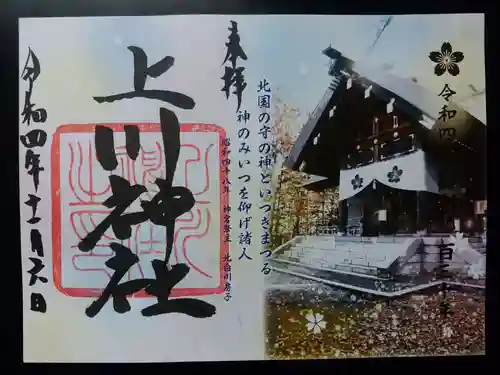 奉拝
上川神社
令和四年十一月六日
北国の守の神といつきまつる
神のみいつを仰げ諸人
昭和四十八年 神宮祭主 北白川房子
令和四